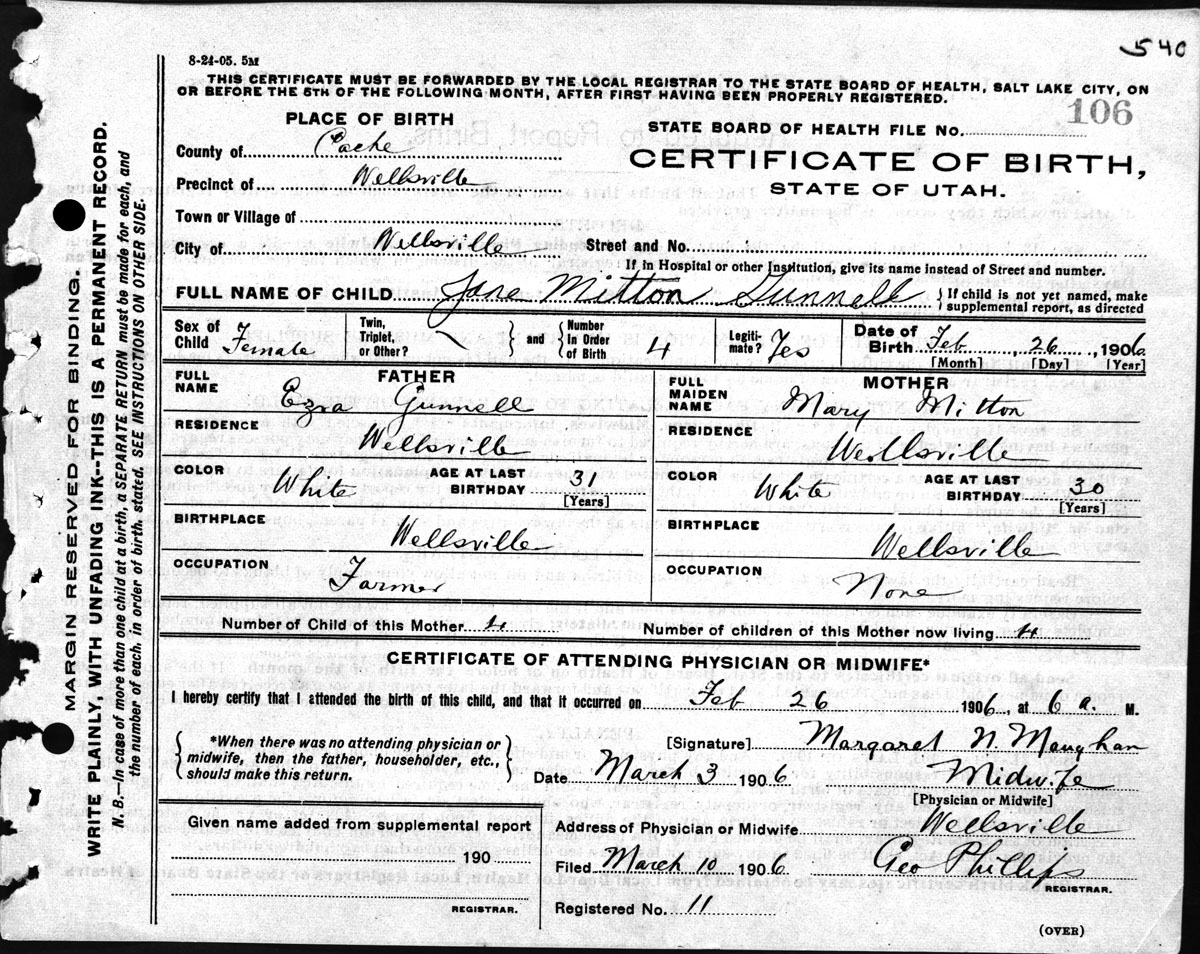 540
8-24-05. 5M
THIS CERTIFICATE MUST BE FORWARDED BY THE LOCAL REGISTRAR TO THE STATE BOARD OF HEALTH, SALT LAKE CITY, ON
OR BEFORE THE 5TH OF THE FOLLOWING MONTH, AFTER FIRST HAVING BEEN PROPERLY REGISTERED.
106
PLACE OF BIRTH
STATE BOARD OF HEALTH FILE No.
County of Cache
CERTIFICATE OF BIRTH,
Precinct of Wellsville
STATE OF UTAH.
Town or Village of
City of Wellsville Street and No.
If in Hospital or other Institution, give its name instead of Street and number.
FULL NAME OF CHILD Jane Mitton Gunnell { If child is not yet named, make supplemental report, as directed
Sex of Child Female Twin, Triplet, or Other? \ } and { Number In Order of Birth 4 Legiti-mate? Yes Date of Birth Feb, 26, 1906
[Month] [Day] [Year]
FATHER
FULL NAME Ezra Gunnell
RESIDENCE
Wellsville
COLOR White AGE AT LAST BIRTHDAY 31
[Years]
BIRTHPLACE
Wellsville
OCCUPATION
Farmer
MOTHER
FULL MAIDEN NAME Mary Mitton
RESIDENCE
Wellsville
COLOR White AGE AT LAST BIRTHDAY 30
[Years]
BIRTHPLACE
Wellsville
OCCUPATION
None
Number of Child of this Mother 4 Number of children of this Mother now living 4
CERTIFICATE OF ATTENDING PHYSICIAN OR MIDWIFE*
I hereby certify that I attended the birth of this child, and that it occurred on Feb 26 1906, at 6 a. M.
{ *When there was no attending physician or
midwife, then the father, householder, etc.,
should make this return. }
[Signature] Margaret N. Maughan
Date March 3 1906 Midwife
[Physician or Midwife]
Given name added from supplemental report
190
REGISTRAR.
Address of Physician or Midwife Wellsville
Filed March 10 1906 Geo Phillips
REGISTRAR.
Registered No. 11
(OVER)
MARGIN RESERVED FOR BINDING.
WRITE PLAINLY, WITH UNFADING INK--THIS IS A PERMANENT RECORD.
N. B.—In case of more than one child at a birth, a SEPARATE RETURN must be made for each, and
the number of each, in order of birth, stated. SEE INSTRUCTIONS ON OTHER SIDE.